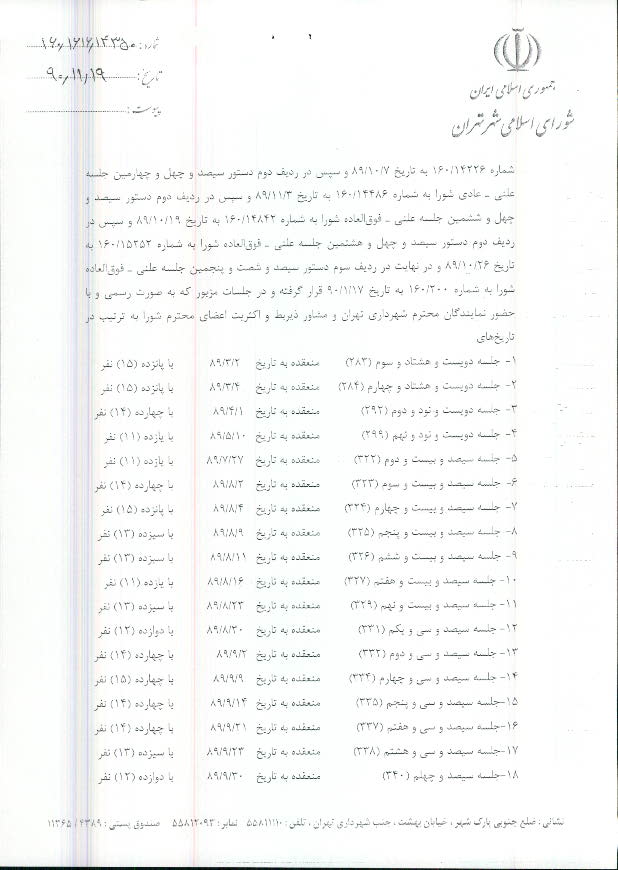 جمهوری اسلامی ایران
شورای اسلامی شهر تهران
شماره: ۱۶۰/۱۶۱۶/۱۴۳۵۰
تاریخ: ۹۰/۱۱/۱۹
پیوست:
شماره ۱۶۰/۱۴۲۲۶ به تاریخ ۸۹/۱۰/۷ و سپس در ردیف دوم دستور سیصد و چهل و چهارمین جلسه
علنی ـ عادی شورا به شماره ۱۶۰/۱۴۴۸۶ به تاریخ ۸۹/۱۱/۳ و سپس در ردیف دوم دستور سیصد و
چهل و ششمین جلسه علنی ـ فوق‌العاده شورا به شماره ۱۶۰/۱۴۸۴۲ به تاریخ ۸۹/۱۰/۱۹ و سپس در
ردیف دوم دستور سیصد و چهل و هشتمین جلسه علنی ـ فوق‌العاده شورا به شماره ۱۶۰/۱۵۲۵۲ به
تاریخ ۸۹/۱۰/۲۶ و در نهایت در ردیف سوم دستور سیصد و شصت و پنجمین جلسه علنی ـ فوق‌العاده
شورا به شماره ۱۶۰/۲۰۰ به تاریخ ۹۰/۱/۱۷ قرار گرفته و در جلسات مزبور که به صورت رسمی و با
حضور نمایندگان محترم شهرداری تهران و مشاور ذیربط و اکثریت اعضای محترم شورا به ترتیب در
تاریخ‌های
۱- جلسه دویست و هشتاد و سوم (۲۸۳) منعقده به تاریخ ۸۹/۳/۲ با پانزده (۱۵) نفر
۲- جلسه دویست و هشتاد و چهارم (۲۸۴) منعقده به تاریخ ۸۹/۳/۴ با پانزده (۱۵) نفر
۳- جلسه دویست و نود و دوم (۲۹۲) منعقده به تاریخ ۸۹/۴/۱ با چهارده (۱۴) نفر
۴- جلسه دویست و نود و نهم (۲۹۹) منعقده به تاریخ ۸۹/۵/۱۰ با یازده (۱۱) نفر
۵- جلسه سیصد و بیست و دوم (۳۲۲) منعقده به تاریخ ۸۹/۷/۲۷ با یازده (۱۱) نفر
۶- جلسه سیصد و بیست و سوم (۳۲۳) منعقده به تاریخ ۸۹/۸/۲ با چهارده (۱۴) نفر
۷- جلسه سیصد و بیست و چهارم (۳۲۴) منعقده به تاریخ ۸۹/۸/۴ با پانزده (۱۵) نفر
۸- جلسه سیصد و بیست و پنجم (۳۲۵) منعقده به تاریخ ۸۹/۸/۹ با سیزده (۱۳) نفر
۹- جلسه سیصد و بیست و ششم (۳۲۶) منعقده به تاریخ ۸۹/۸/۱۱ با سیزده (۱۳) نفر
۱۰- جلسه سیصد و بیست و هفتم (۳۲۷) منعقده به تاریخ ۸۹/۸/۱۶ با یازده (۱۱) نفر
۱۱- جلسه سیصد و بیست و نهم (۳۲۹) منعقده به تاریخ ۸۹/۸/۲۳ با سیزده (۱۳) نفر
۱۲- جلسه سیصد و سی و یکم (۳۳۱) منعقده به تاریخ ۸۹/۸/۳۰ با دوازده (۱۲) نفر
۱۳- جلسه سیصد و سی و دوم (۳۳۲) منعقده به تاریخ ۸۹/۹/۲ با چهارده (۱۴) نفر
۱۴- جلسه سیصد و سی و چهارم (۳۳۴) منعقده به تاریخ ۸۹/۹/۹ با چهارده (۱۵) نفر
۱۵- جلسه سیصد و سی و پنجم (۳۳۵) منعقده به تاریخ ۸۹/۹/۱۴ با چهارده (۱۴) نفر
۱۶- جلسه سیصد و سی و هفتم (۳۳۷) منعقده به تاریخ ۸۹/۹/۲۱ با چهارده (۱۴) نفر
۱۷- جلسه سیصد و سی و هشتم (۳۳۸) منعقده به تاریخ ۸۹/۹/۲۳ با سیزده (۱۳) نفر
۱۸- جلسه سیصد و چهلم (۳۴۰) منعقده به تاریخ ۸۹/۹/۳۰ با دوازده (۱۲) نفر
نشانی: ضلع جنوبی پارک شهر، خیابان بهشت، جنب شهرداری تهران، تلفن: ۵۵۸۱۱۱۱۰ نمابر: ۵۵۸۱۲۰۹۳ صندوق پستی: ۱۱۳۶۵/۴۳۸۹